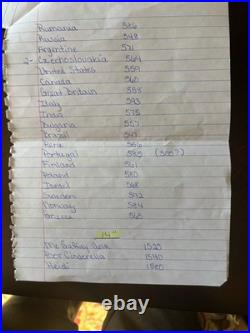 Rumania 586
Russia 548
Argentine 571
2- Czechoslovakia 564
United States 559
Canada 560
Great Britain 558
Italy 593
India 575
Bulgaria 557
Brazil 547
556
Portugal 585 (500?)
Finland 561
Poland 580
Israel 568
Sweden 592
Norway 584
Greece 565
14"
1520
Poor Cinderella 1540
Heidi 1580